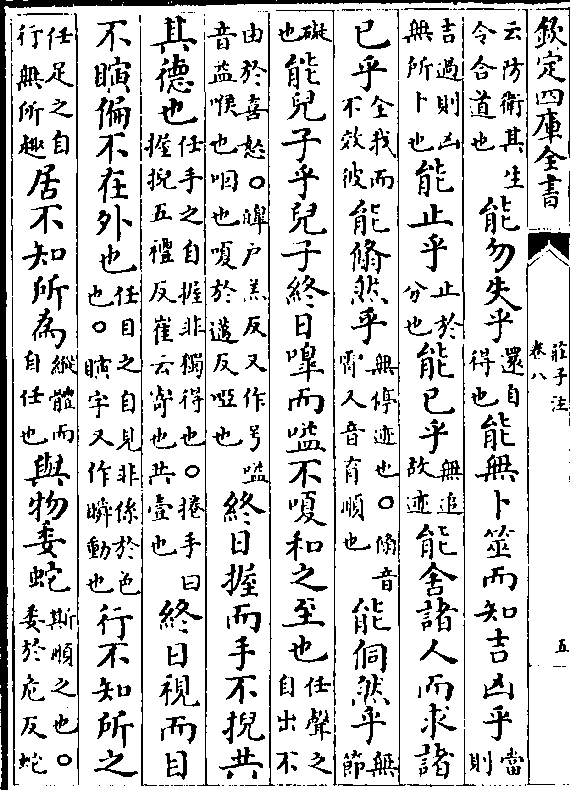 欽定四庫全書
莊子注
卷八
五
云防衛其生令合道也能勿失乎還自得也能無卜筮而知吉凶乎當則
吉過則凶無所卜也能止乎止於分也能已乎無追故迹能舍諸人而求諸
已乎全我而不效彼能翛然乎無停迹也○翛音霄人音育順也能侗然乎無節
礙也能兒子乎兒子終日嘷而嗌不嗄和之至也任聲之自出不
由於喜怒○嘷户羔反又作号嗌音益喉也咽也嗄於邁反啞也終日握而手不掜共
其德也任手之自握非獨得也○捲手曰握掜五禮反崔云寄也共壹也終日視而目
不瞚偏不在外也任目之自見非係於色也○瞚字又作瞬動也行不知所之
任足之自行無所趣居不知所為縱體而自任也與物委蛇斯順之也○委於危反蛇